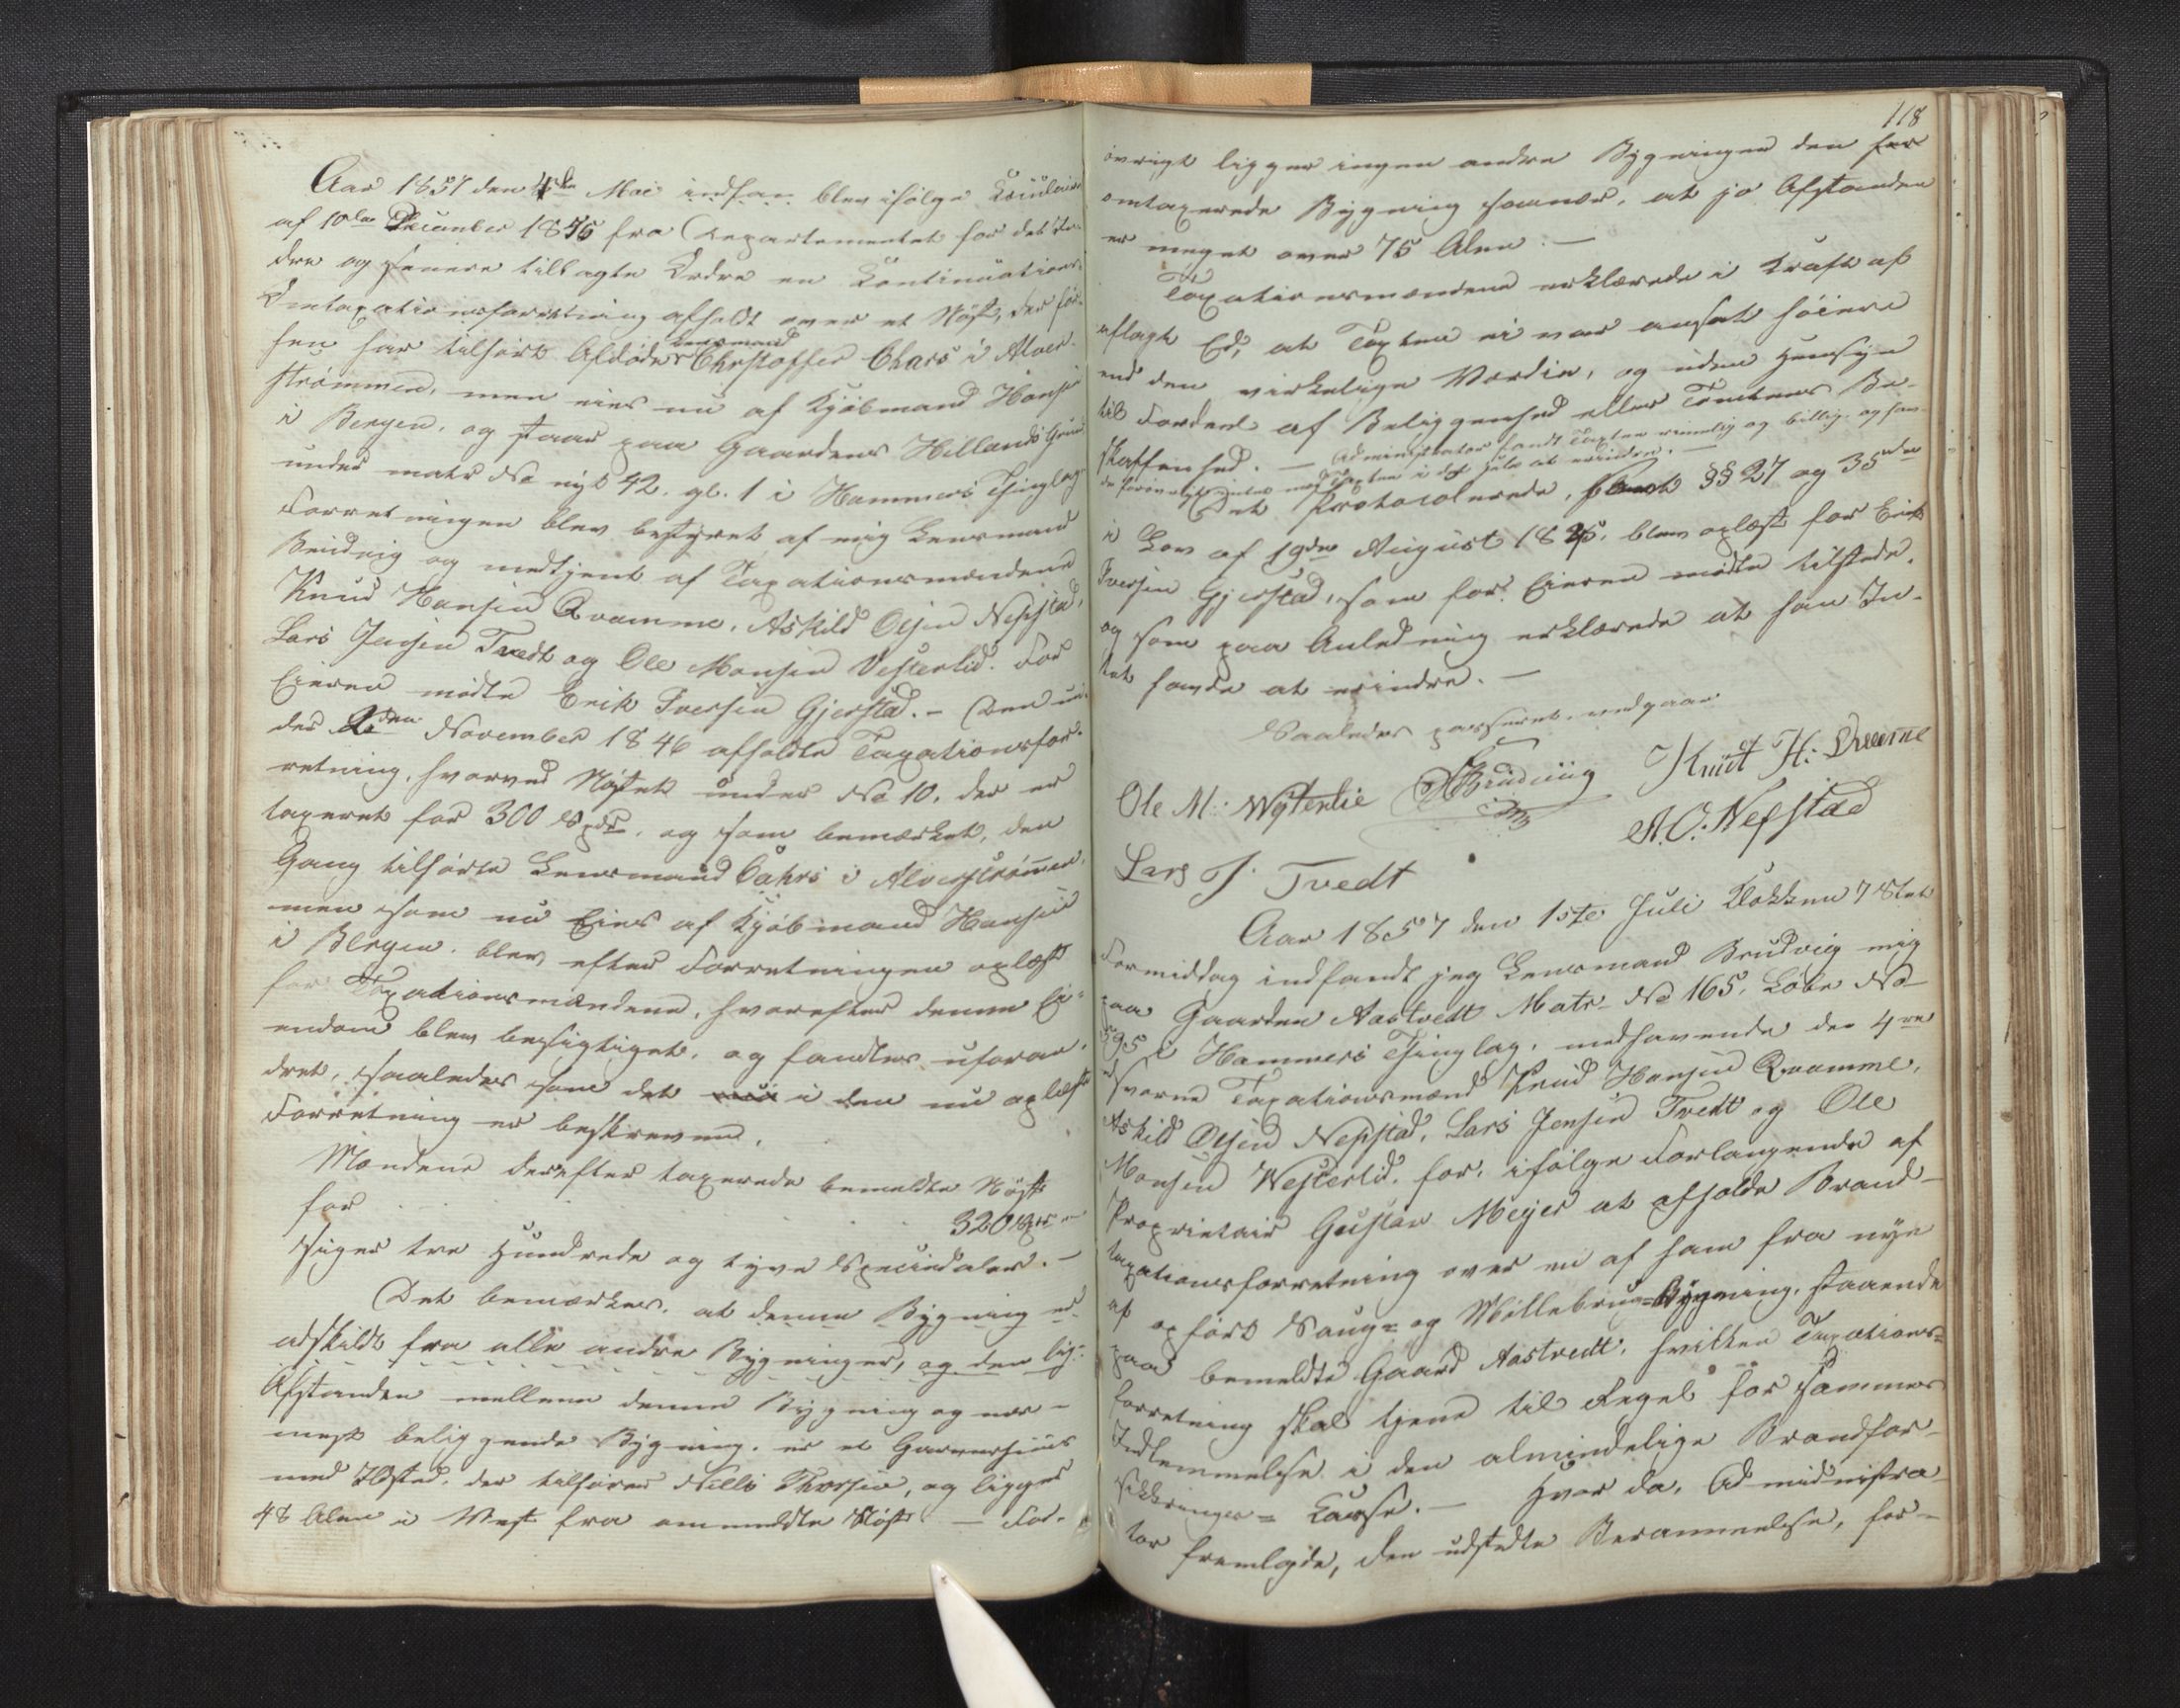 Aar 1857 den 4de Mai indhan blev ifølge Circulaire
af 10de December 1846 fra Departementet for det In-
dre og senere tillagte Ordre en Continuations-
Omtaxationsforretning afholdt over et Nøst, der før-
hen har tilhørt Afdøde Lensmand Christoffer Chars i Alver-
strømmen, men eies nu af Kjøbmand Hansen
i Bergen, og staar paa Gaardens Hillands Grund
under matr No nyt 42. gl. 1 i Hammers Thinglag
Forretningen blev bestyret af mig Lensmand
Brudvig og medtjent af Taxationsmændene
Knud Hansen Qvamme, Askild Olsen Nepstad,
Lars Jensen Tvedt og Ole Monsen Vesterlid. For
Eieren mødte Erik Iversen Gjerstad. – Den un-
der 2den November 1846 afholdte Taxationsfor-
retning, hvorved Nøstet under No 10, der er
taxeret for 300 Spdr. og som bemærket, den
Gang tilhørte Lensmand Cahrs i Alverstrømmen,
men som nu Eies af Kjøbmand Hansen
i Bergen, blev efter Forretningen oplæst
for Taxationsmændene, hvorefter denne Ei-
endom blev besigtiget, og fandtes uforan-
dret, saaledes som det i den nu oplæste
Forretning er beskreven.
Mændene derefter taxerede bemeldte Nøst
for . . . . . 320 Spdr
siger tre Hundrede og tyve Speciedaler. –
Det bemærkes, at denne Bygning er
adskildt fra alle andre Bygninger, og den lig-
Afstanden mellem denne Bygning og nær-
mest beliggende Bygning, er et Garverhuus
med Ildsted, der tilhører Nills Thorsen, og ligger
48 Alen i Vest fra ommeldte Nøst – For-
118
øvrigt ligger ingen andre Bygninger den her
omtaxerede Bygning saanær, at jo Afstanden
er meget over 75 Alen. –
Taxationsmændene erklærede i Kraft af
aflagt Ed, at Taxten ei var ansat høiere
end den virkelige Værdie, og uden Hensyn
til Fordeel af Beliggenhed eller Tomtens Be-
skaffenhed. – Administrator fandt Taxten rimelig og billig, og hav-
de forøvrigt intet ved Taxten i det Hele at erindre. –
Det Protocolerede, samt §§ 27 og 35
i Lov af 19de August 1845, blev oplæst for Erik
Iversen Gjerstad, som for Eieren mødte tilstede,
og som paa Anledning erklærede at han In-
tet havde at erindre. –
Saaledes passeret, vedgaar
Ole M: Wæsterlie Brudviig Knut H: Qvame
mp
A. O: Nefstad
Lars J. Tvedt
Aar 1857 den 1ste Juli Klokken 7 Slet
Formiddag indfandt jeg Lensmand Brudvig mig
paa Gaarden Aastvedt Matr. No 165, Løbe No
595 i Hammers Thinglag, medhavende de 4re
edsvorne Taxationsmænd Knud Hansen Qvamme,
Askild Olsen Nepstad, Lars Jensen Tvedt og Ole
Monsen Westerlid, for, ifølge Forlangende af
Proprietair Gustav Meyer at afholde Brand-
taxationsforretning over en af ham fra nye
af opført Saug- og Møllebrug-Bygning, staaende
paa bemeldte Gaard Aastvedt, hvilken Taxations-
forretning skal tjene til Regel for sammes
Indlemmelse i den almindelige Brandfor-
sikkrings- Casse. – Hvor da, Administra-
tor fremlagde, den udstedte Berammelse, for-